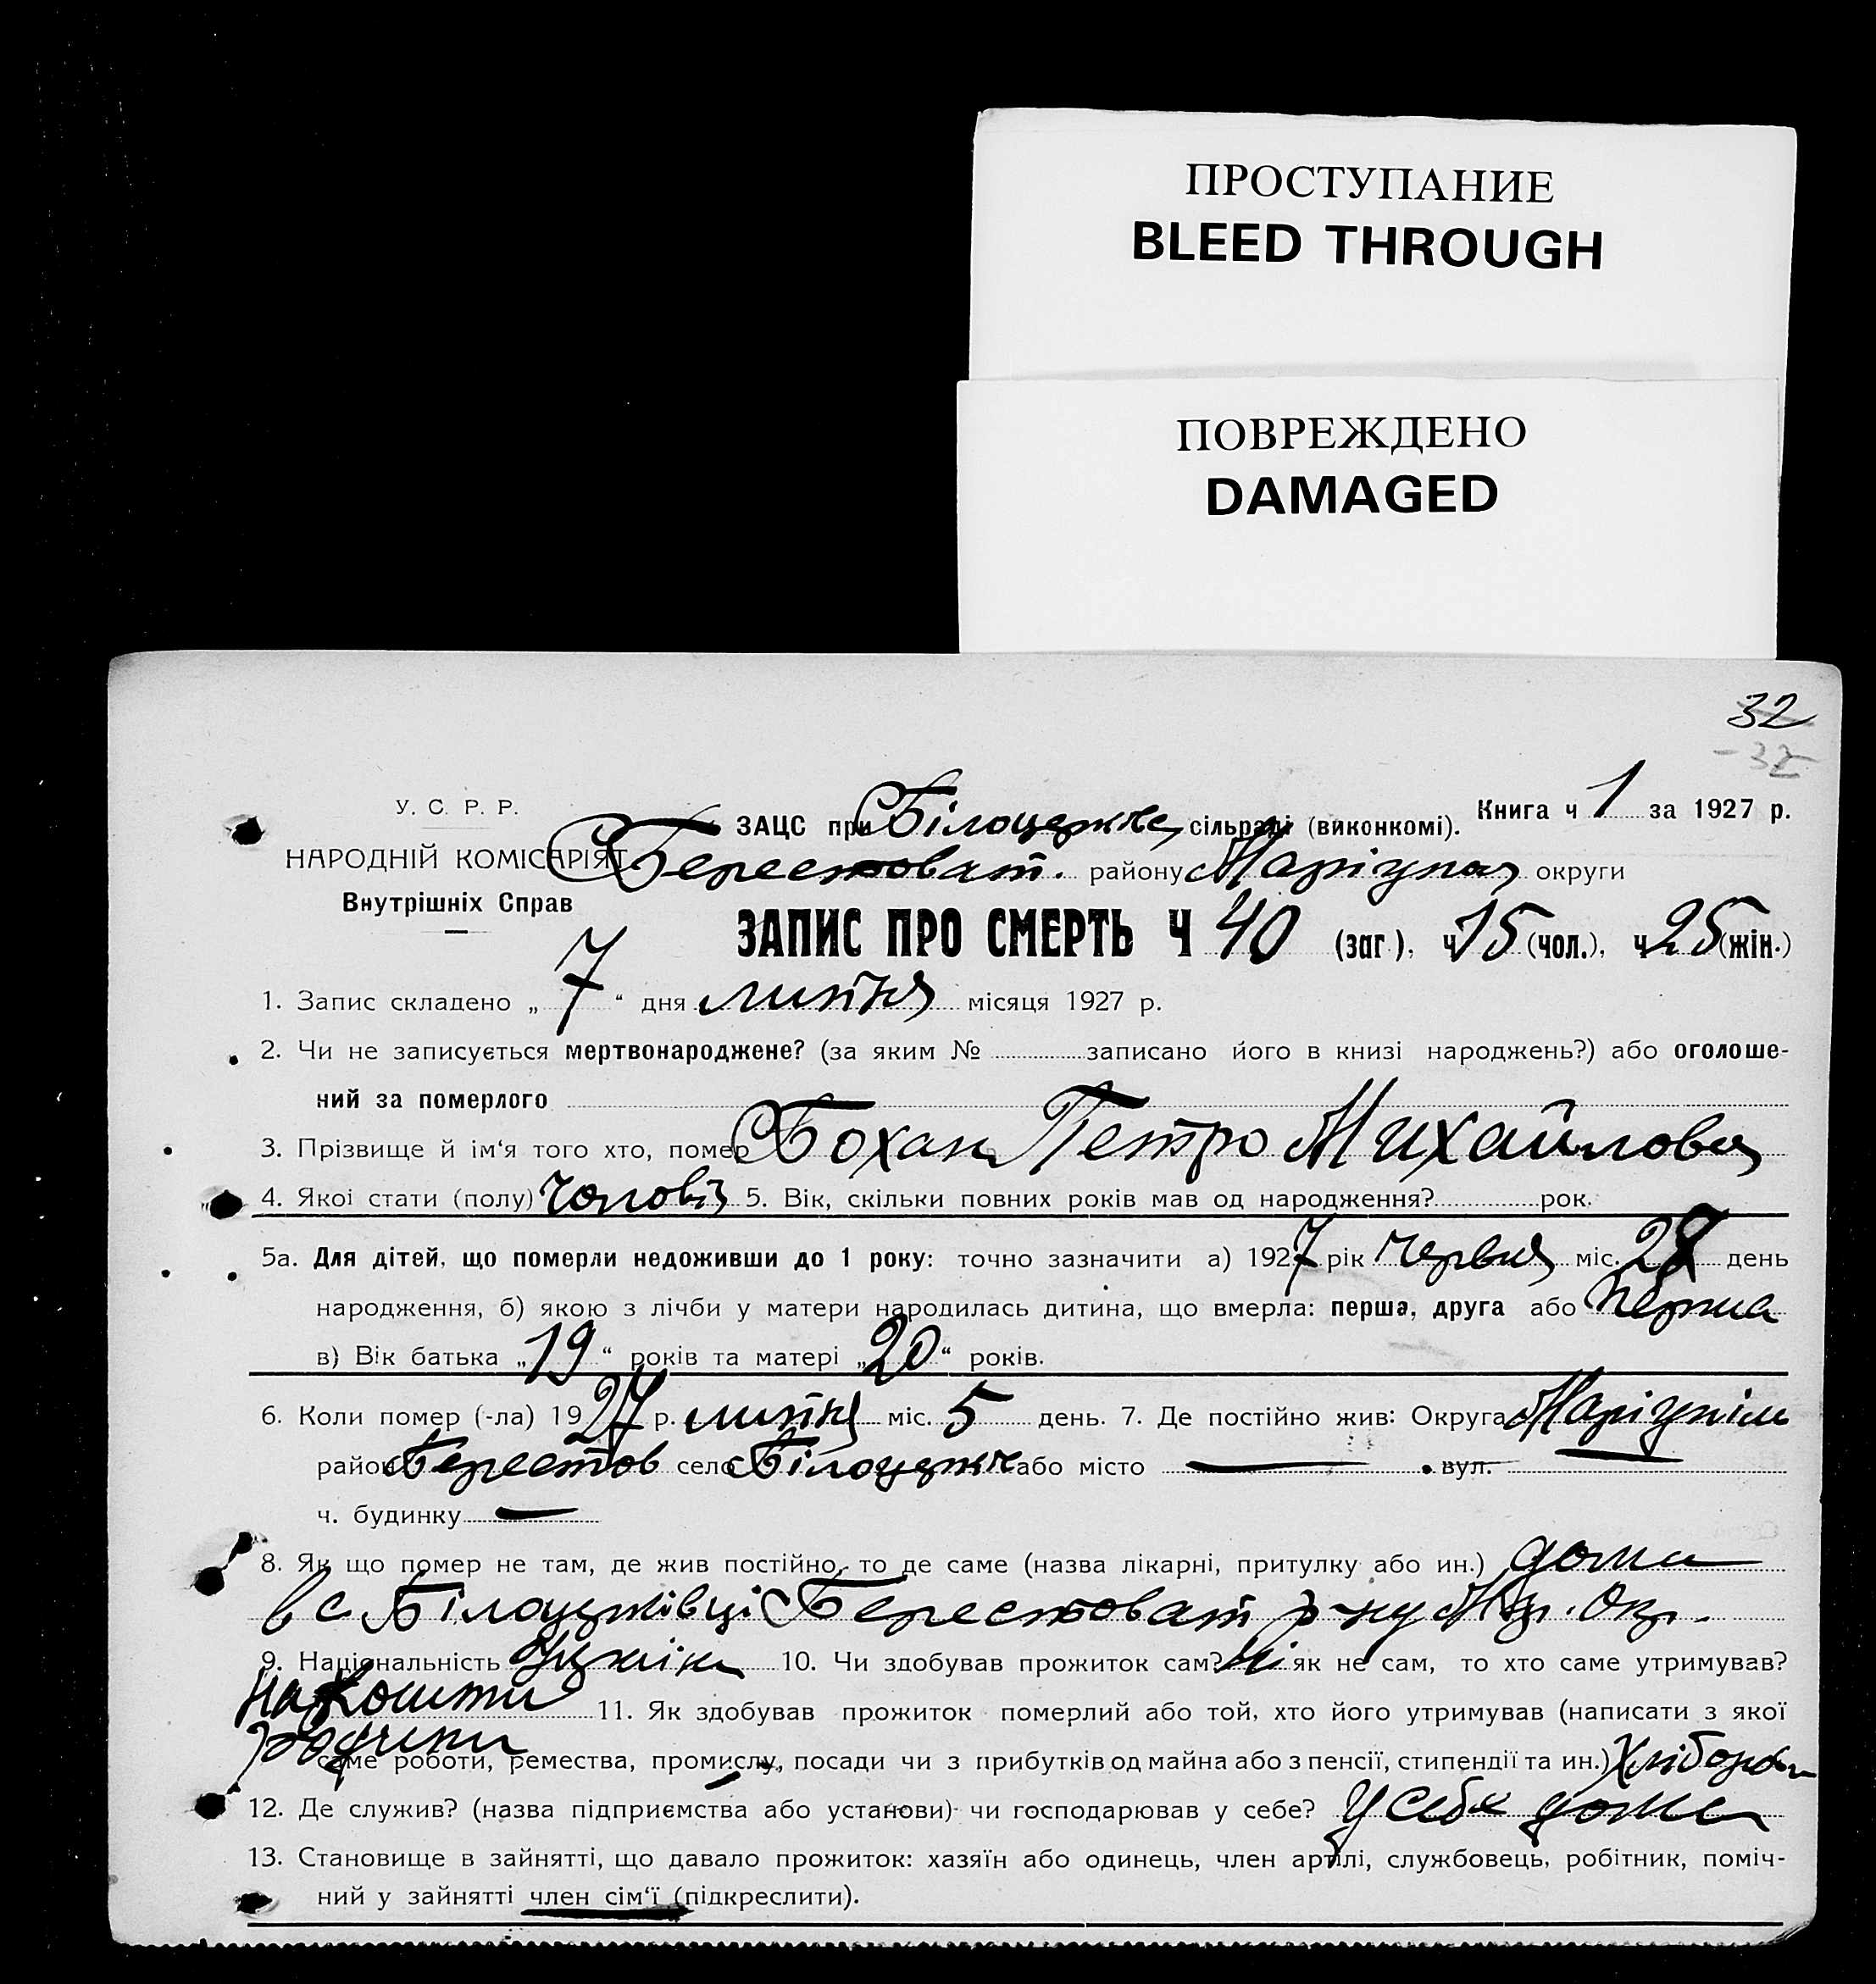 ПРОСТУПАНИЕ
BLEED THROUGH
ПОВРЕЖДЕНО
DAMAGED
32
- 32
У. С. Р. Р.
НАРОДНІЙ КОМІСАРІЯТ
Внутрішніх Справ
ЗАЦС при Білоцерківс сільраді (виконкомі). Книга ч 1 за 1927 р.
Берестоват. району Маріупол округи
ЗАПИС ПРО СМЕРТЬ Ч 40 (заг.), ч 15 (чол.), ч 25 (жін.)
1. Запис складено „ 7 “ дня липня місяця 1927 р.
2. Чи не записується мертвонароджене? (за яким № записано його в книзі народжень?) або оголоше-
ний за померлого
3. Прізвище й ім‘я того хто, помер Бохан Петро Михайлович
4. Якої стати (полу) Чолов 5. Вік, скільки повних років мав од народження? рок.
5а. Для дітей, що померли недоживши до 1 року: точно зазначити а) 1927 рік Червня міс. 28 день
народження, б) якою з лічби у матери народилась дитина, що вмерла: перша, друга або Перша
в) Вік батька „ 19 “ років та матері „ 20 “ років.
6. Коли помер (-ла) 1927 р. липня міс. 5 день. 7. Де постійно жив: Округа Маріупіль
район Берестов село Білоцерків або місто — вул.
ч. будинку —
8. Як що помер не там, де жив постійно, то де саме (назва лікарні, притулку або ин.) дома
в с. Білоцерківці Берестоват р-ну Мар. Окр.
9. Національність Україн 10. Чи здобував прожиток сам? Ні як не сам, то хто саме утримував?
на кошти 11. Як здобував прожиток померлий або той, хто його утримував (написати з якої
родини саме роботи, ремества, промислу, посади чи з прибутків од майна або з пенсії, стипендії та ин.) Хлібороб
12. Де служив? (назва підприємства або установи) чи господарював у себе? У себе дома
13. Становище в зайнятті, що давало прожиток: хазяїн або одинець, член артілі, службовець, робітник, поміч-
ний у зайнятті член сім‘ї (підкреслити).